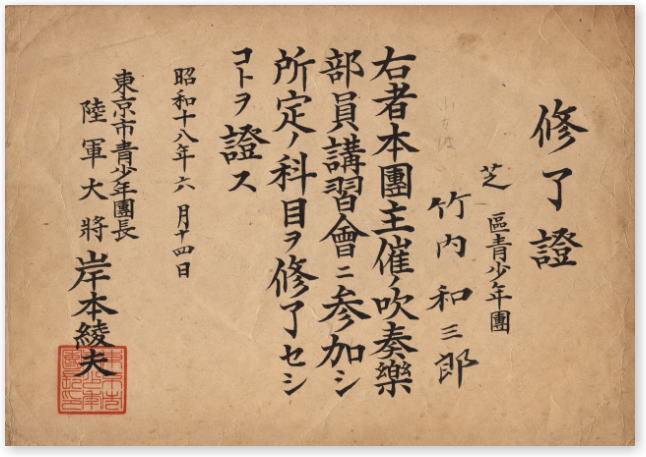 修了證
芝區青少年團
竹内和三郎
右者本團主催ノ吹奏樂
部員講習會ニ参加シ
所定ノ科目ヲ修了セシ
コトヲ證ス
昭和十八年六月十四日
東京市青少年團長
陸軍大將岸本綾夫